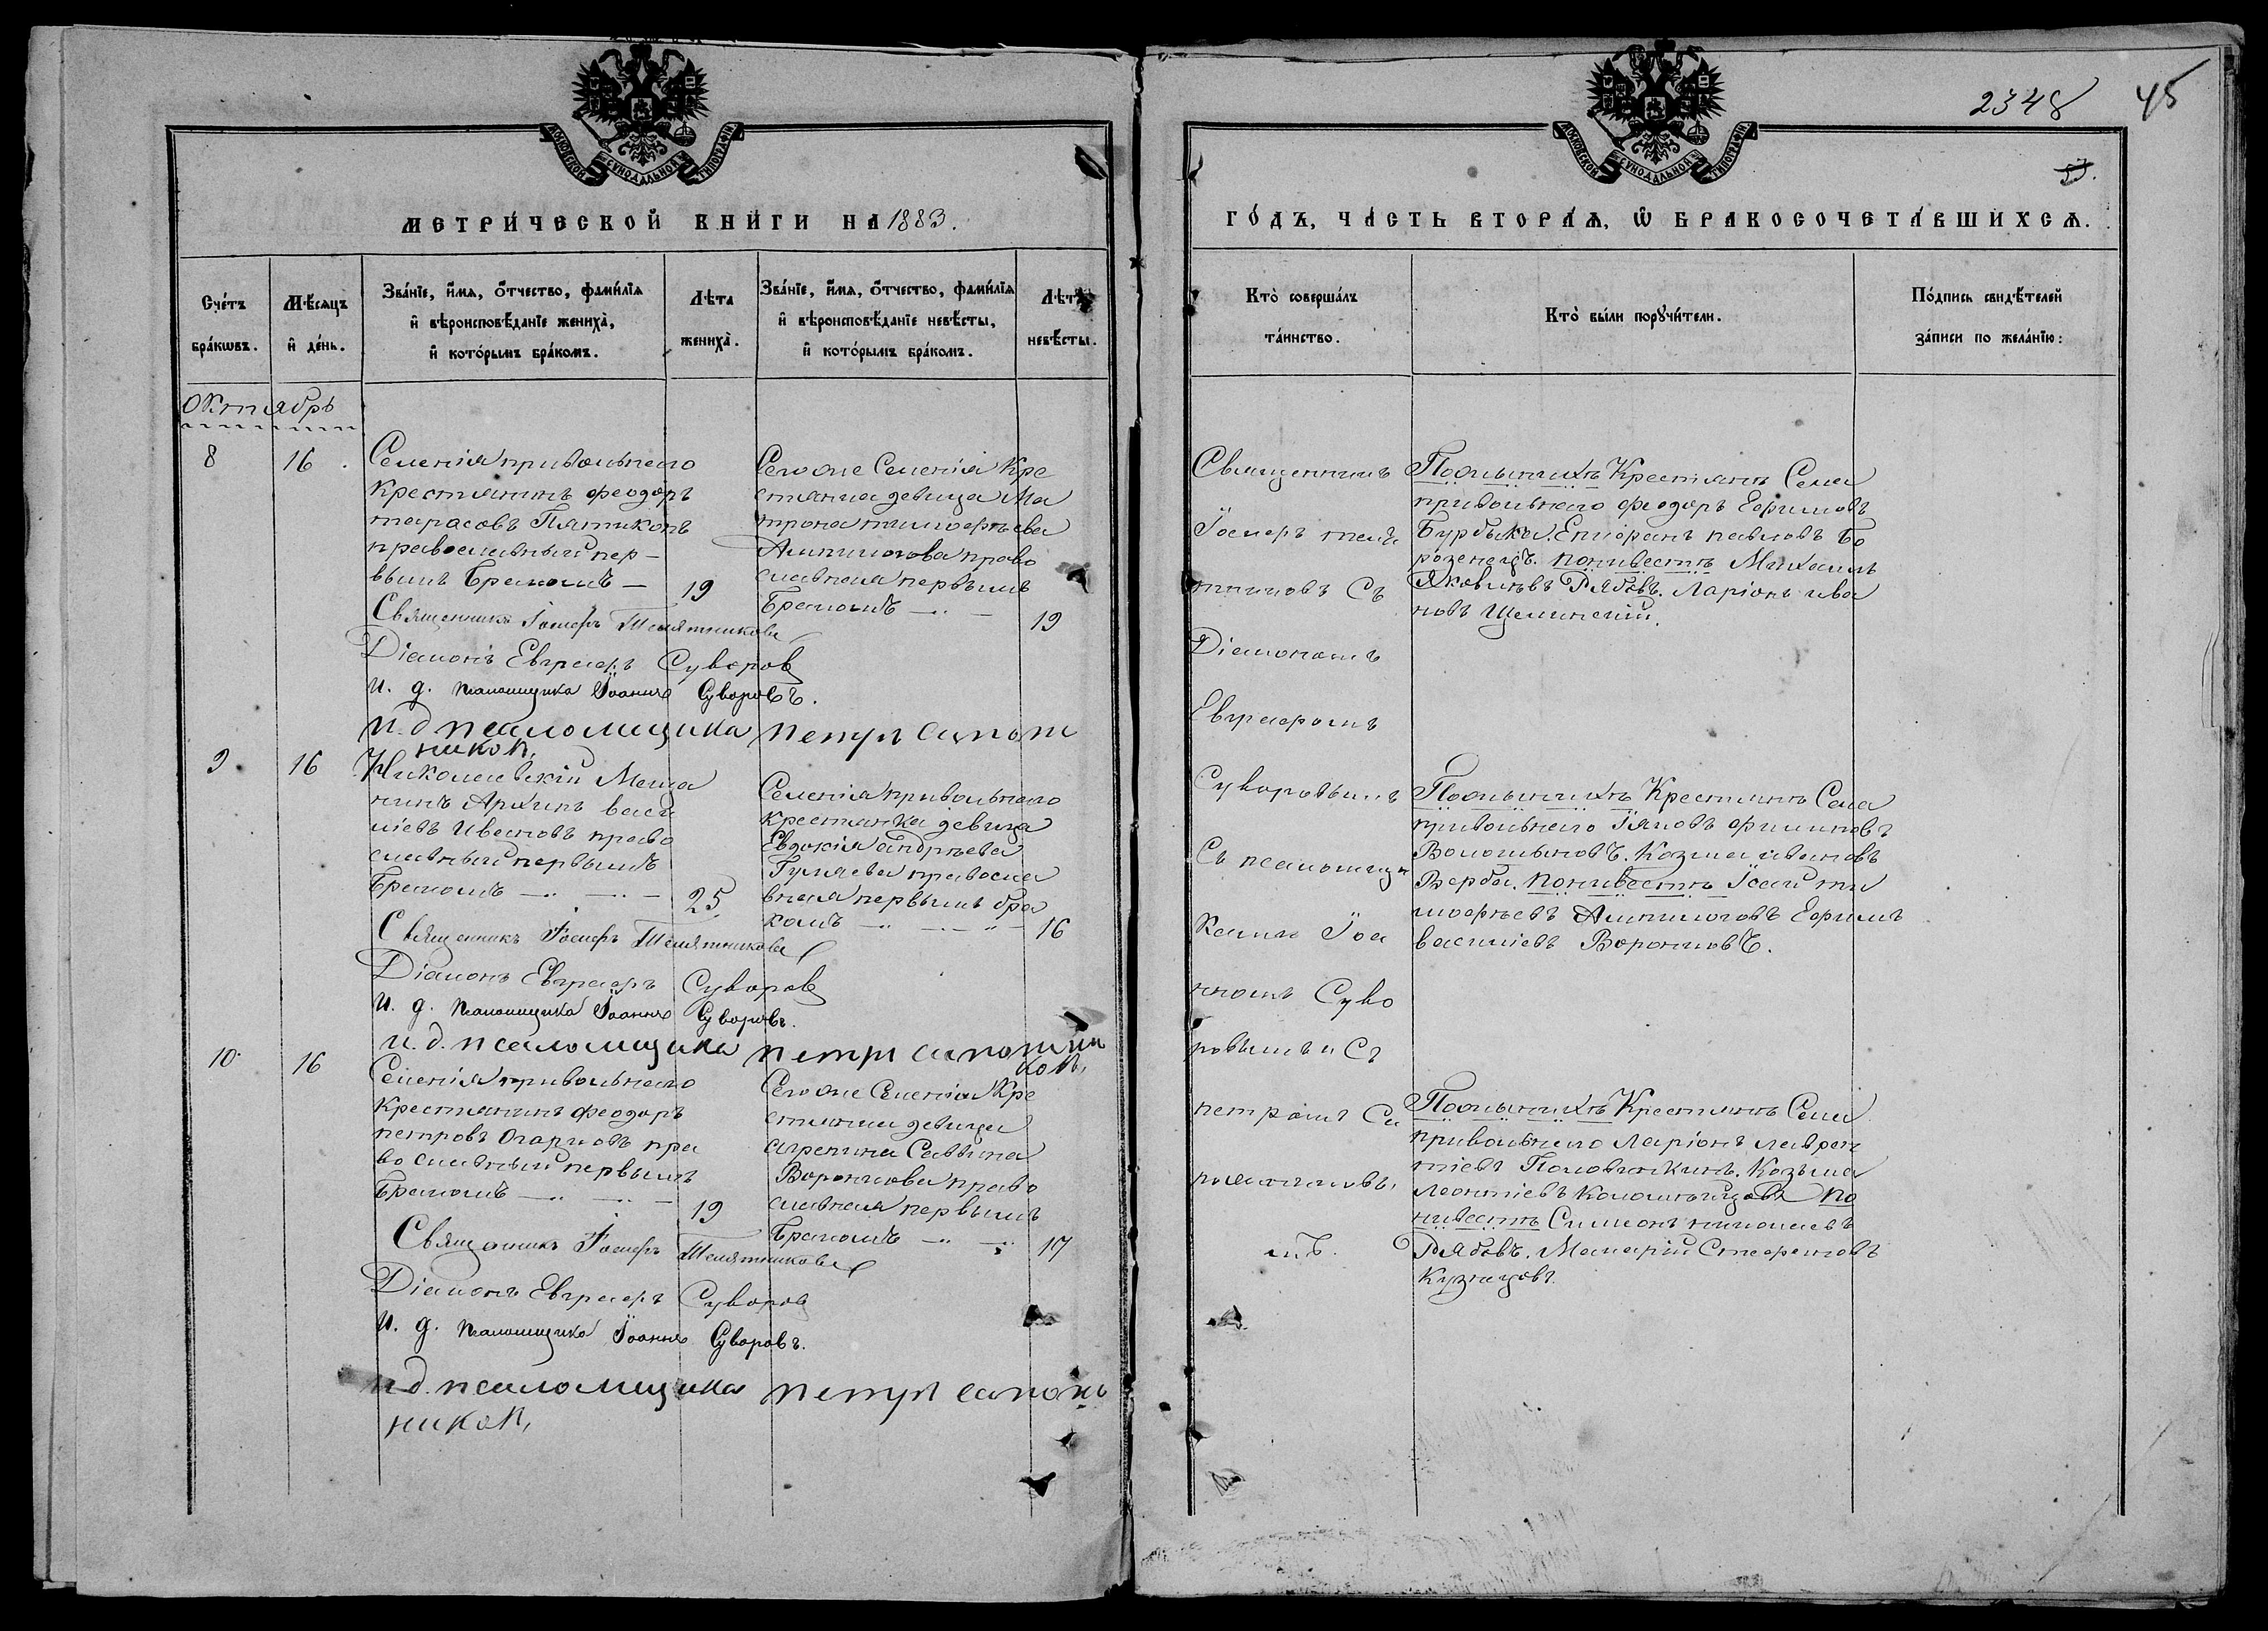 МОСКОВСКОЙ СѴНОДАЛЬНОЙ ТИПОГРАФІИ
МЕТРИ́ЧЕСКОЙ КНИ́ГИ НА 1883.
Сче́тъ бра́кѡвъ.
Мѣ́сяцъ и҆ де́нь.
Зва́нїе, и҆́мя, ѻ҆́тчество, фами́лїя
и҆ вѣроисповѣ́данїе жениха̀,
и҆ кото́рымъ бра́комъ.
Лѣта жениха̀.
Зва́нїе, и҆́мя, ѻ҆́тчество, фами́лїя
и҆ вѣроисповѣ́данїе невѣ́сты,
и҆ кото́рымъ бра́комъ.
Лѣта невѣ́сты.
Октябрь
8
16
Селенія привольнаго
Крестьянинъ Феодоръ
тарасовъ Пятикопъ
православный пер-
вымъ Бракомъ —
19
Сего же Селенія Кре
стьянка девица Ма
трона тимофѣева
Ампилогова право
славная первымъ
Бракомъ —
19
Священникъ Іосифъ Телятниковъ
Діаконъ Евграфъ Суворов
И. д. псаломщика Іоаннъ Суворовъ.
и.д псаломщика петръ сапож
ников,
9
16
Николаевскій Меща
нинъ Архипъ васи
ліевъ Ивановъ право
славный первымъ
Бракомъ —
25
Селенія привольнаго
крестьянка девица
Евдокія андрѣева
Гуляева правосла
вная первымъ бра
комъ —
16
Священникъ Іосифъ Телятниковъ
Діаконъ Евграфъ Суворов
И. д. псаломщика Іоаннъ Суворовъ.
и.д. псаломщика петръ сапожни
ков,
10
16
Селенія привольнаго
Крестьянинъ Феодоръ
петровъ Огарковъ пра
вославный первымъ
Бракомъ —
19
Сего же Селенія Кре
стьянка девица
агрепина Саввина
Воронцова право
славная первымъ
Бракомъ —
17
Священникъ Іосифъ Телятниковъ
Діаконъ Евграфъ Суворов
И. д. псаломщика Іоаннъ Суворовъ.
и.д. псаломщика петръ сапож
ников,
2348
45
53.
МОСКОВСКОЙ СѴНОДАЛЬНОЙ ТИПОГРАФІИ
ГО́ДЪ, ЧА́СТЬ ВТОРА́Я, Ѡ҆ БРАКОСОЧЕТА́ВШИХСЯ.
Кто̀ соверша́лъ
та́инство.
Кто̀ бы́ли порꙋчи́тели.
По́дпись свидѣ́телей
за́писи по жела́нію:
Священникъ
Іосифъ теля
тниковъ Съ
Діакономъ
Евграфомъ
Суворовымъ
Съ псаломщи
комъ Іоа
нномъ Суво
ровымъ и Съ
петромъ Са
пожниковы
мъ.
По женихѣ Крестьяне Села
привольнаго Феодоръ Ефимовъ
Бурбыка. Епифанъ павловъ Бо
розенецъ. по невестѣ Михаилъ
Яковлевъ Рябовъ. Ларіонъ ива
новъ Щелинскій.
По женихѣ Крестьяне Села
привольнаго Іяковъ Филиповъ
Волошыновъ. Козма ивановъ
Верба. по невестѣ Ісай ти
мофѣевъ Ампилоговъ Ефимъ
василіевъ Воронцовъ.
По женихѣ Крестьяне Села
привольнаго Ларіонъ лаврен
тіевъ Половинкинъ. Козьма
Леонтіевъ Коломыцовъ по
невестѣ Симеонъ николаевъ
Рябовъ. Макарій Стефановъ
Кузнецовъ.